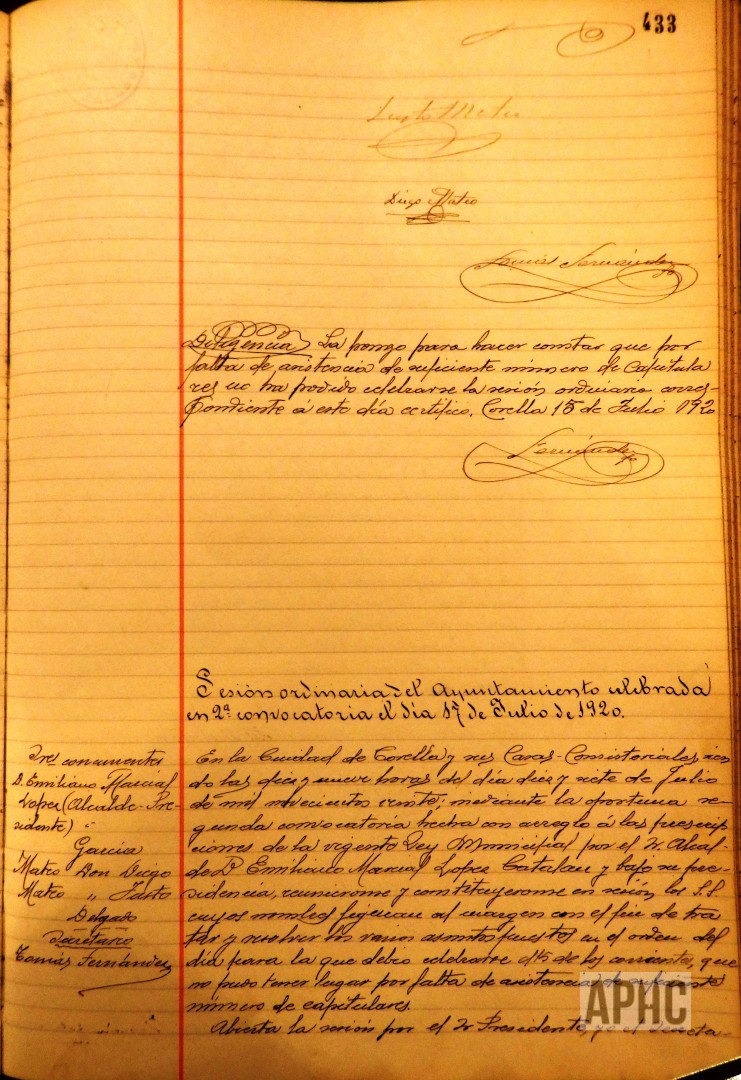 433
Justo Mateo
Diego Mateo
Tomás Fernández
Diligencia La pongo para hacer constar que por
falta de asistencia de suficiente número de Capitula
res no ha podido celebrarse la sesión ordinaria corres-
pondiente á este día certifico. Corella 15 de Julio 1920
Fernández
Sesión ordinaria del Ayuntamiento celebrada
en 2ª convocatoria el día 17 de Julio de 1920.
Sres concurrentes
D. Emiliano Marcial
Lopez (Alcalde-Pre-
sidente)
Garcia
Mateo Don Diego
Mateo " Justo
Delgado
Secretario
Tomás Fernández
En la Ciudad de Corella y sus Casas-Consistoriales sien
do las diez y nueve horas del día diez y siete de Julio
de mil novecientos veinte; mediante la oportuna se-
gunda convocatoria hecha con arreglo á las prescrip
ciones de la vigente Ley Municipal por el Sr Alcal-
de D. Emiliano Marcial Lopez Catalan y bajo su pre-
sidencia, reunieronse y constituyeronse en sesión los S.S.
cuyos nombres figuran al margen con el fin de tra
tar y resolver los varios asuntos puestos en el orden del
día para la que debio celebrarse el 15 de los corrientes, que
no pudo tener lugar por falta de asistencia de suficiente
número de capitulares.
Abierta la sesión por el Sr Presidente, yo el Secreta-
APHC